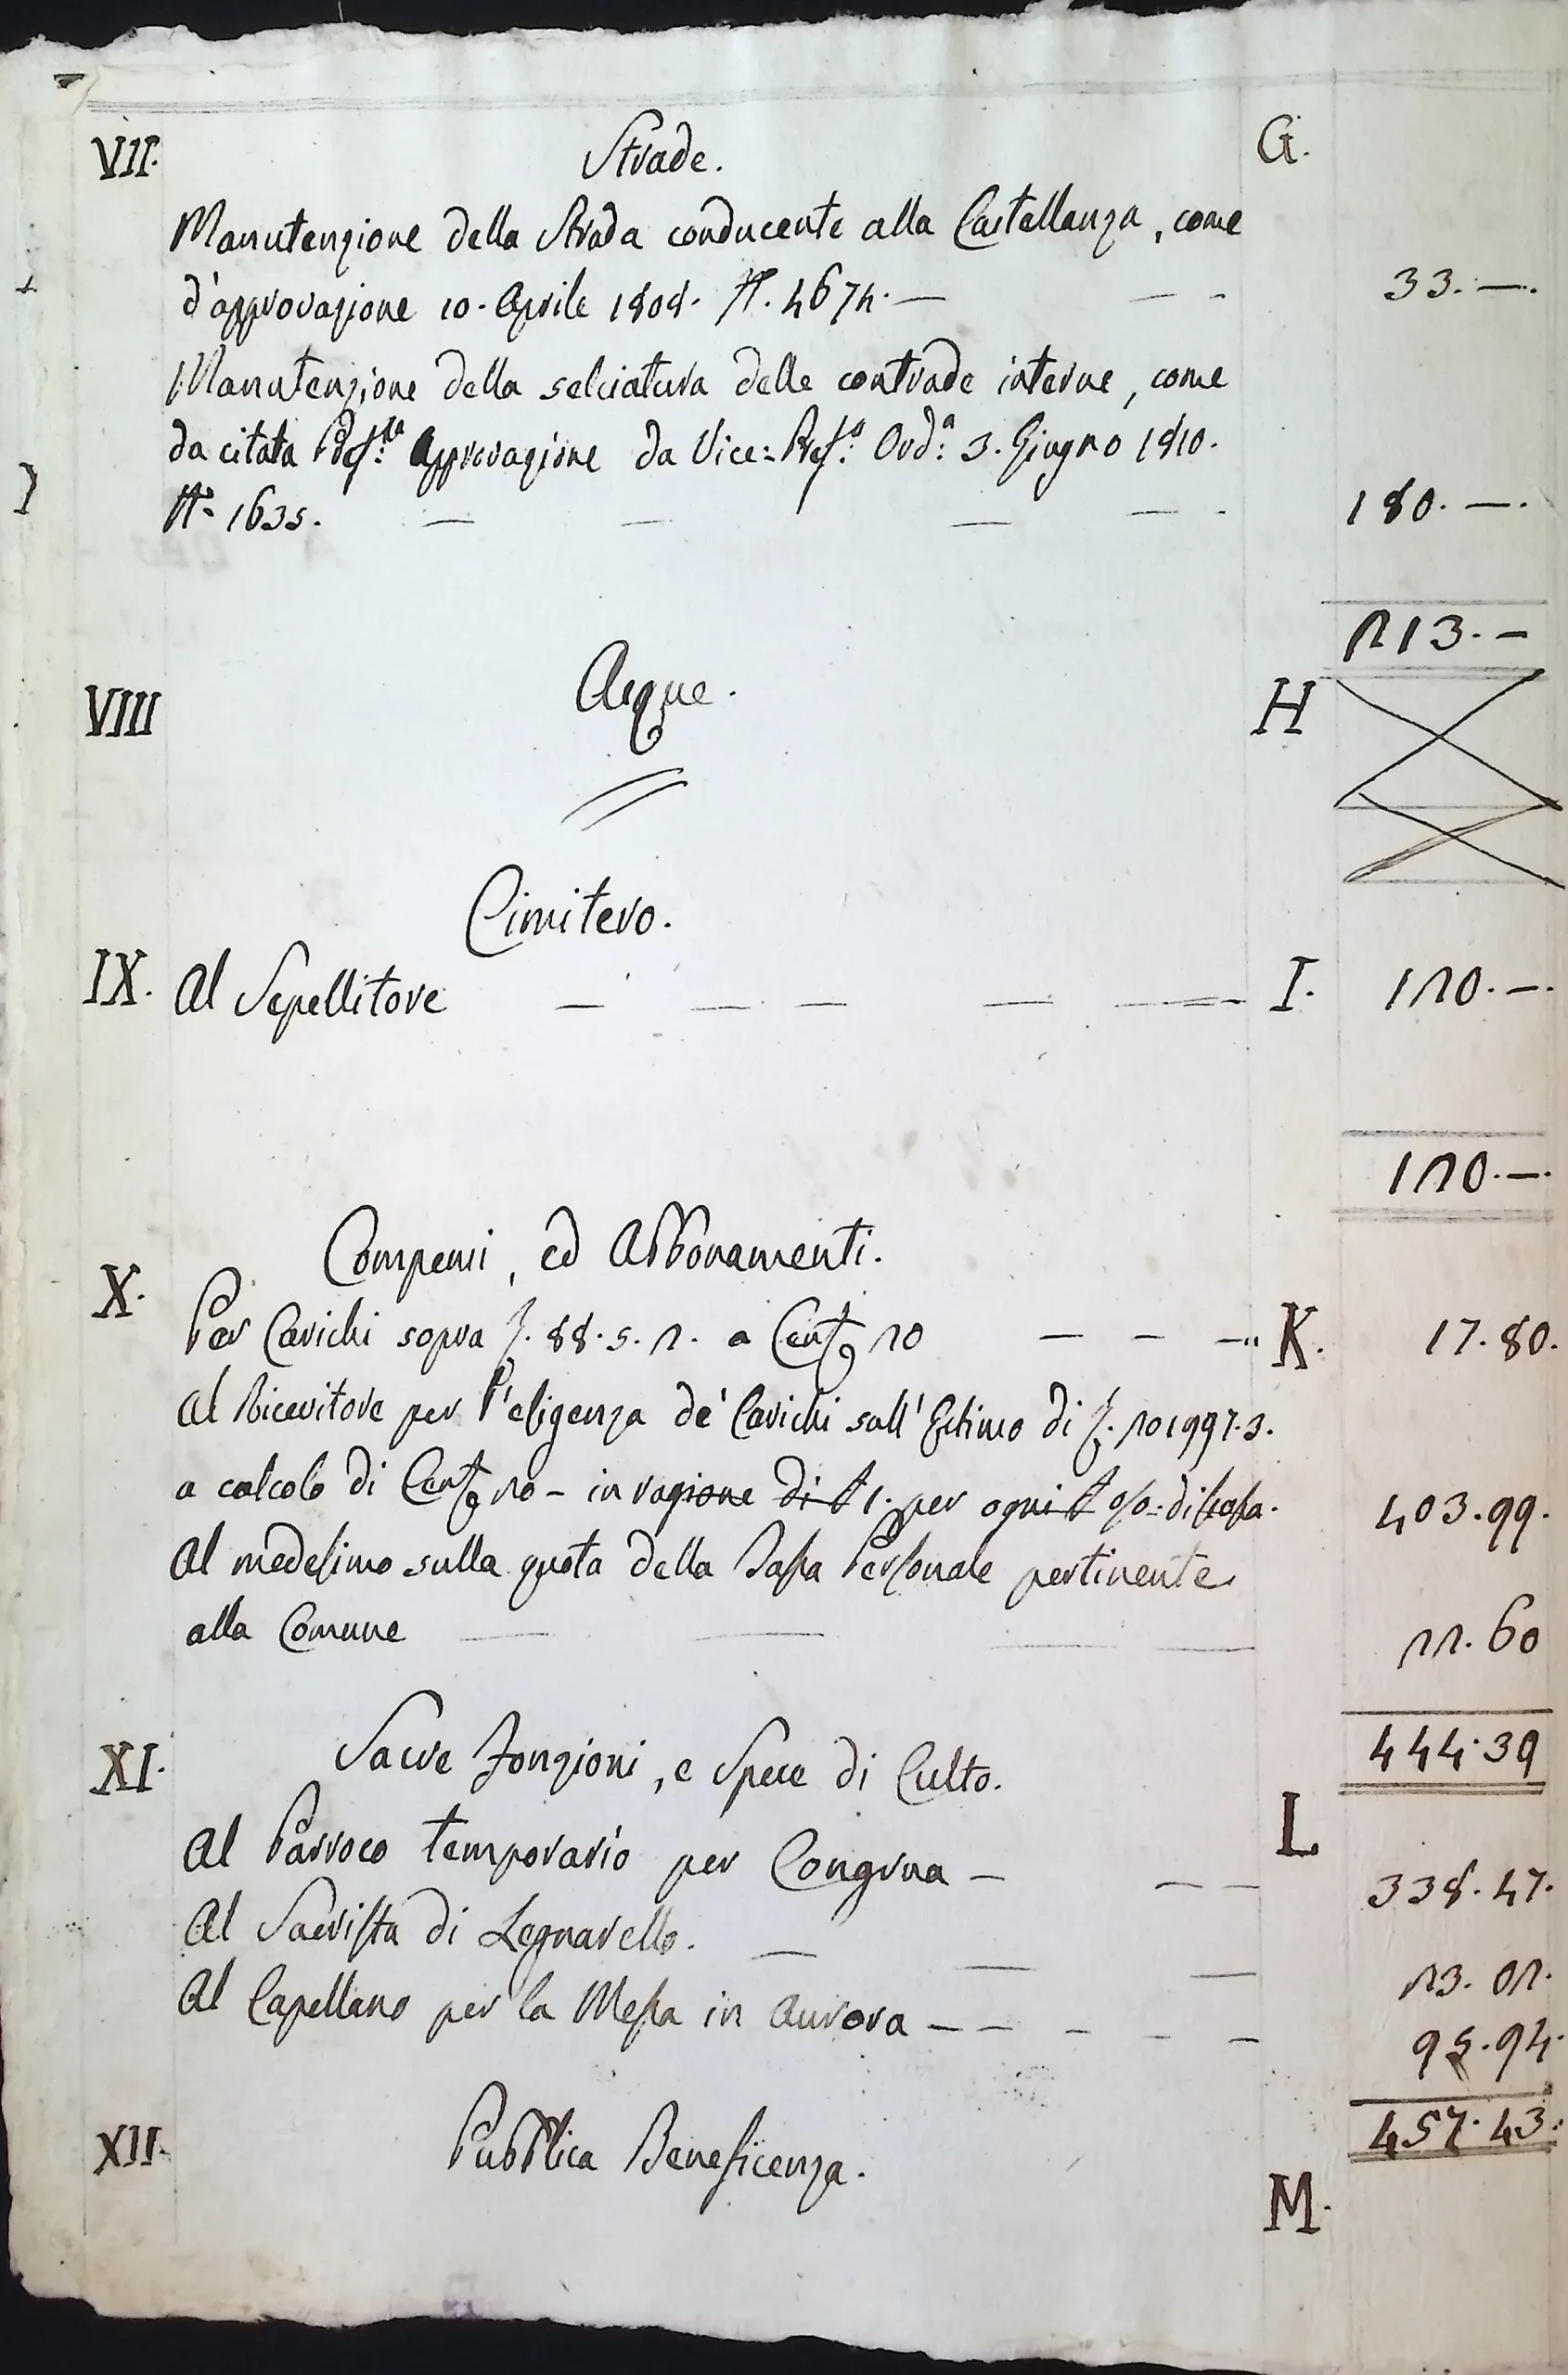 VII. Strade. G.
Manutenzione della Strada conducente alla Castellanza, come
d'approvazione 10. Aprile 1808. N. 4674. — — - 33. —.
Manutenzione della selciatura delle contrade interne, come
da citata Pref.ta Approvazione da Vice=Pref.a Ord.a 3. Giugno 1810.
N.° 1635. — — — — - 180. —.
213. —
VIII Acque. H
Cimitero.
IX. Al Sepellitore — — — — — I. 120. —.
120. —.
Compensi, ed Abbonamenti.
X.
Per Carichi sopra £. 88. 5. 2. a Cent. 20 — — — K. 17. 80.
Al Ricevitore per l'esigenza de' Carichi sull'Estimo di £. 201997. 3.
a calcolo di Cent. 20 — in ragione di £ 1. per ogni £ %= di scossa. 403. 99.
Al medesimo sulla quota della Tassa Personale pertinente
alla Comune — — — — 22. 60
444. 39
XI. Sacre Fonzioni, e Spese di Culto.
L
Al Parroco temporario per Congrua — — — 338. 47.
Al Sacrista di Legnarello. — — — 23. 02.
Al Capellano per la Messa in Aurora — — — — — 95. 94.
457. 43.
XII. Pubblica Beneficenza.
M.